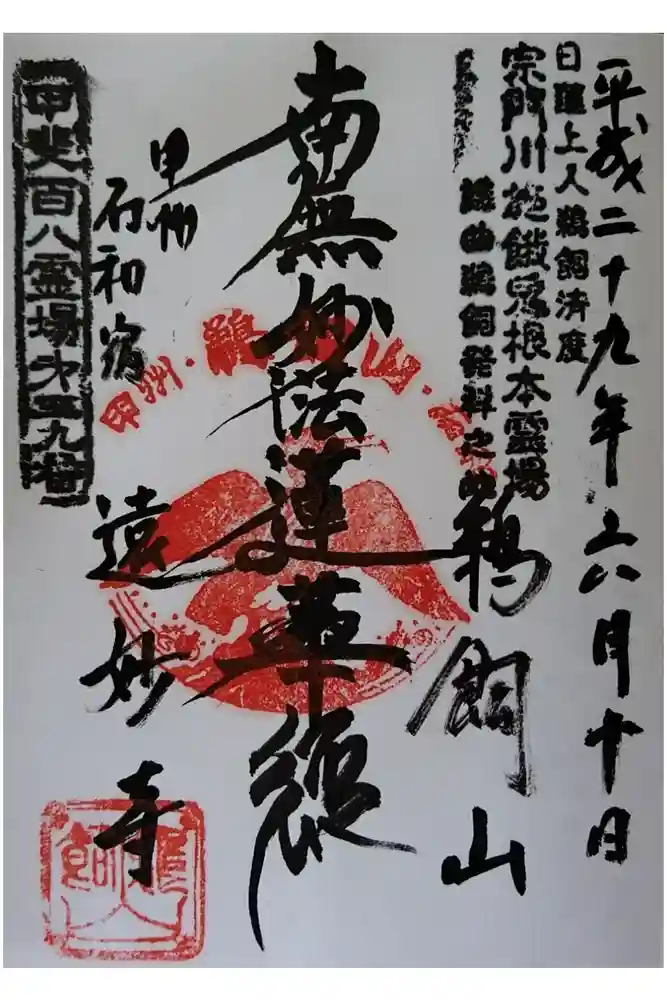 平成二十九年六月十日
日蓮上人鵜飼済度
宗門川施餓鬼根本霊場
謡曲鵜飼発祥之地
鵜飼山
南無妙法蓮華経
甲州
石和宿
遠妙寺
甲斐百八霊場第五九番
甲州・鵜飼山・
鵜飼山